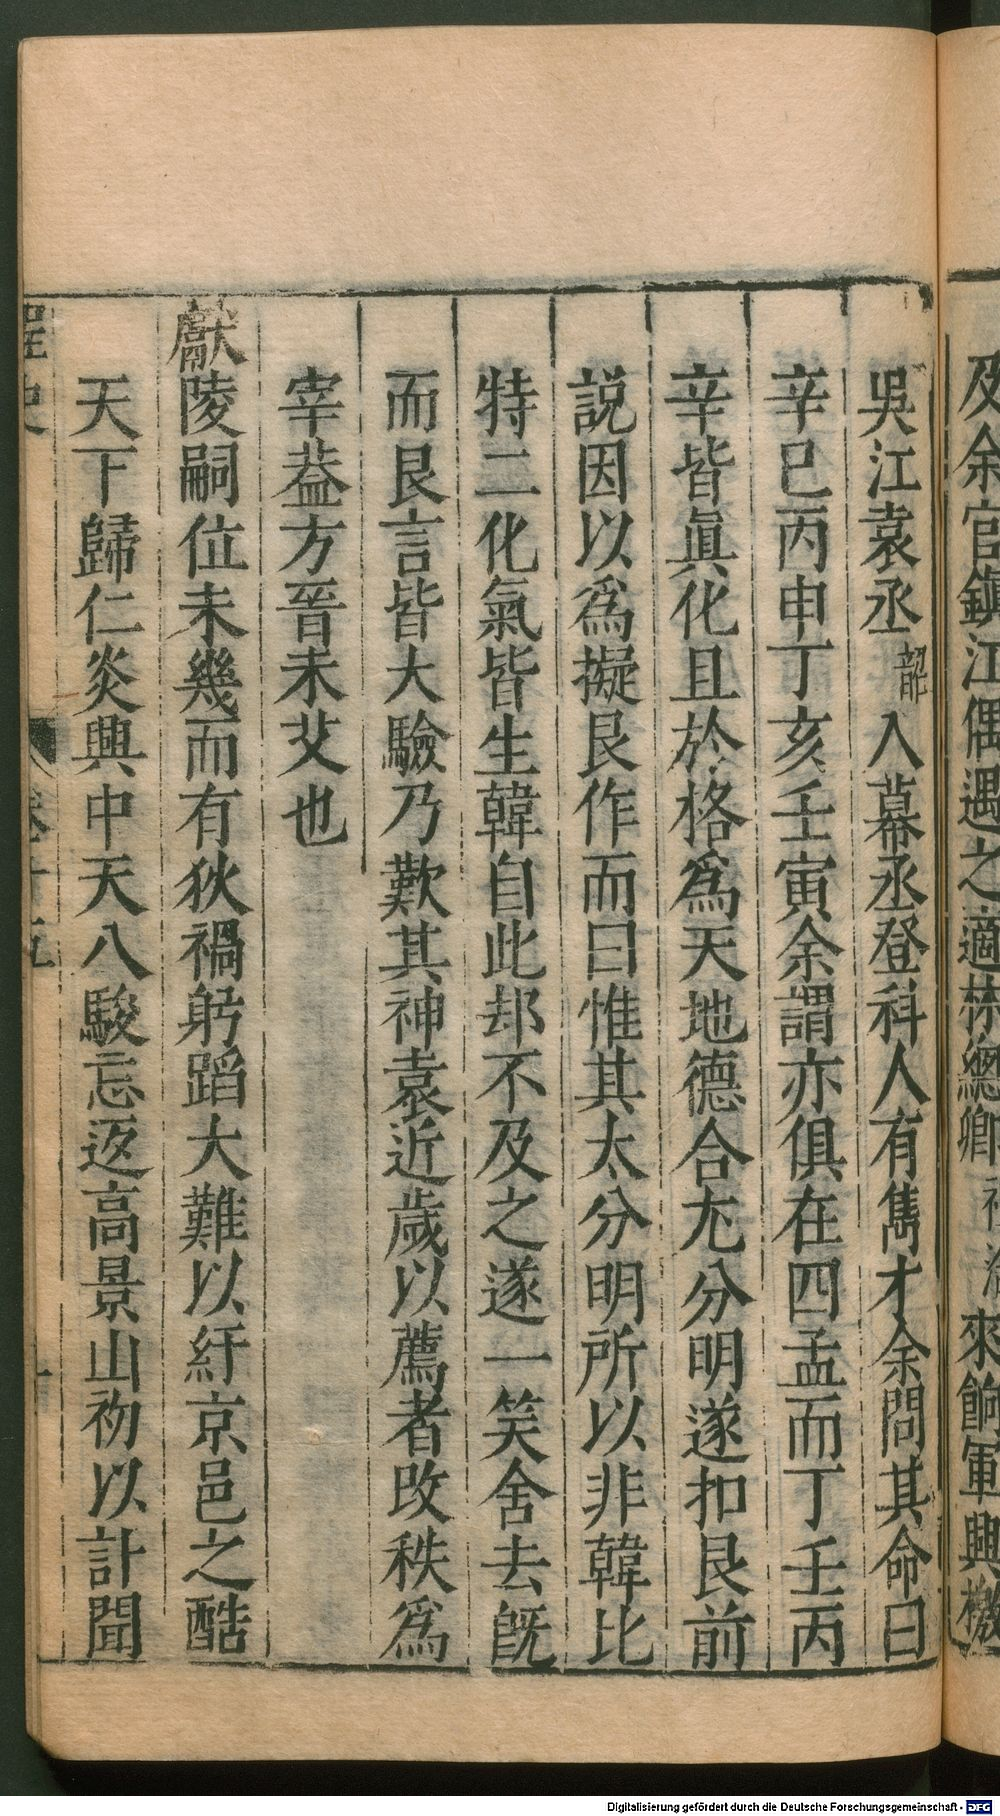 及余官鎮江偶遇之適林總卿祖洽來餉軍興檄
吳江袁丞韶入幕丞登科人有雋才余問其命曰
辛巳丙申丁亥壬寅余謂亦俱在四孟而丁壬丙
辛皆眞化且於格爲天地德合尤分明遂扣艮前
説因以爲擬艮作而曰惟其太分明所以非韓比
特二化氣皆生韓自此却不及之遂一笑舍去旣
而艮言皆大驗乃歎其神袁近歲以薦者改秩爲
宰葢方晉未艾也
獻陵嗣位未幾而有狄禍躬蹈大難以紓京邑之酷
天下歸仁炎興中天八駿忘返高景山初以計聞
桯史
卷十五
十
Digitalisierung gefördert durch die Deutsche Forschungsgemeinschaft - DFG